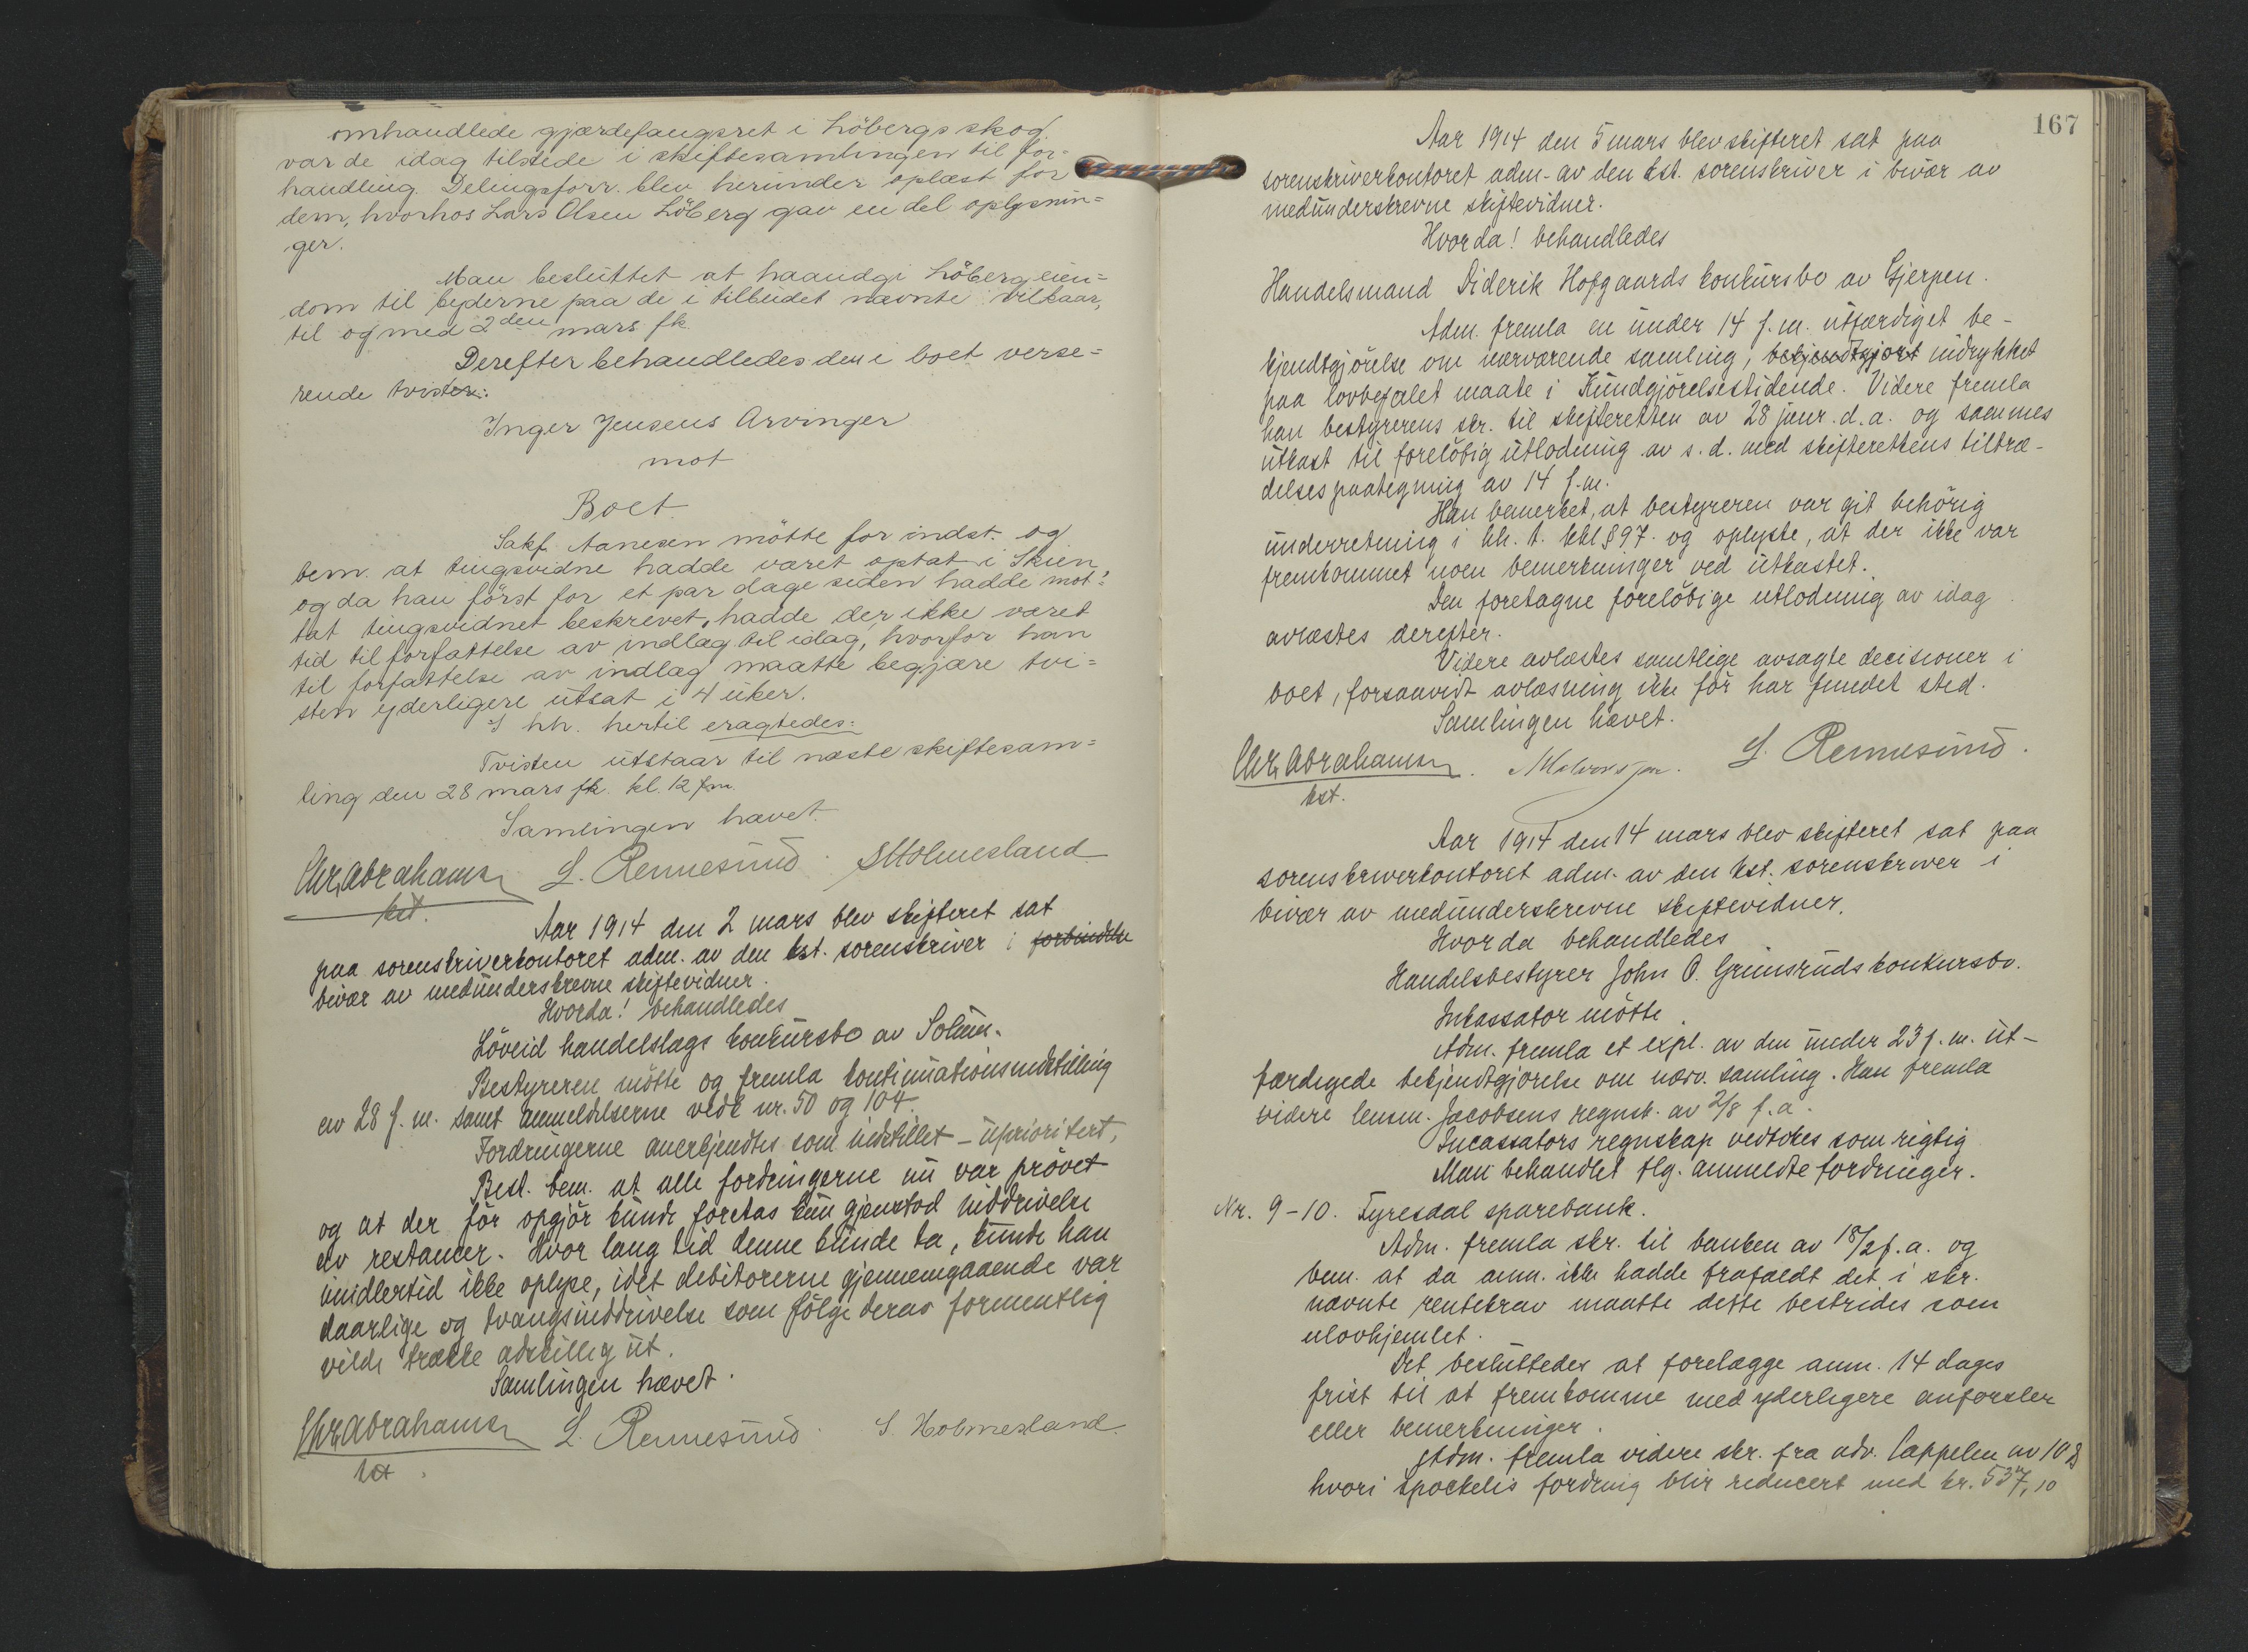 omhandlede gjærdefangsret i Löbergs skog
var de idag tilstede i skiftesamlingen til for-
handling. Delingsforr. blev herunder oplæst for
dem, hvorhos Lars Olsen Löberg gav en del oplysnin=
ger.
Man besluttet at haandgi Löberg eien=
dom til byderne paa de i tilbudet nævnte vilkaar,
til og med 2den mars fk.
Derefter behandledes den i boet verse=
rende tvister:
Inger Jensens Arvinger
mot
Boet
Sakf. Aanesen mötte for indst. og
bem. at tingsvidne hadde været optat i Skien,
og da han först for et par dage siden hadde mot=
tat tingsvidnet beskrevet, hadde der ikke været
tid til forfattelse av indlag til idag, hvorfor han
til forfattelse av indlag maatte begjære tvi=
sten yderligere utsat i 4 uker.
I hh. hertil eragtedes:
Tvisten utstaar til næste skiftesam=
ling den 28 mars fk. kl. 12 fm.
Samlingen hævet.
Chr. Abrahamsen L. Rennesund S Holmesland
kst.
Aar 1914 den 2 mars blev skifteret sat
paa sorenskriverkontoret adm. av den kst. sorenskriver i forbindelse
bivær av medunderskrevne skiftevidner.
Hvorda! behandledes
Löveid handelslags konkursbo av Solum.
Bestyreren mötte og fremla kontinuationsindstilling
av 28 f. m. samt anmeldelserne vedk nr. 50 og 104.
Fordringerne anerkjendtes som indstillet - uprioritert.
Best. bem. at alle fordringerne nu var prövet
og at der för opgjör kunde foretas kun gjenstod inddrivelse
av restancer. Hvor lang tid denne kunde ta, kunde han
imidlertid ikke oplyse, idet debitorerne gjennemgaaende var
daarlige og tvangsinddrivelse som fölge derav formentlig
vilde trække adskillig ut.
Samlingen hævet.
Chr. Abrahamsen L. Rennesund S. Holmesland.
kst.
167
Aar 1914 den 5 mars blev skifteret sat paa
sorenskriverkontoret adm. av den kst. sorenskriver i bivær av
medunderskrevne skiftevidner.
Hvorda! behandledes
Handelsmand Diderik Hofgaards konkursbo av Gjerpen.
Adm. fremla en under 14 f. m. utfærdiget be-
kjendtgjörelse om nærværende samling, bekjendtgjort indrykket
paa lovbefalet maate i Kundgjörelsestidende. Videre fremla
han bestyrerens skr. til skifteretten av 28 janr. d. a. og sammes
utkast til forelöbig utlodning av s. d. med skifterettens tiltræ-
delsespaategning av 14 f. m.
Han bemerket, at bestyreren var git behörig
underretning i hh. t. kkl § 97. og oplyste, at der ikke var
fremkommet noen bemerkninger ved utkastet.
Den foretagne forelöbige utlodning av idag
avlæstes derefter.
Videre avlæstes samtlige avsagte decisioner i
boet, forsaavidt avlæsning ikke för har fundet sted.
Samlingen hævet.
Chr. Abrahamsen. L. Rennesund.
kst.
Aar 1914 den 14 mars blev skifteret sat paa
sorenskriverkontoret adm. av den kst. sorenskriver i
bivær av medunderskrevne skiftevidner.
Hvorda behandledes
Handelsbestyrer John O. Grimsruds konkursbo.
Inkassator mötte.
Adm. fremla et expl. av den under 23 f. m. ut-
færdigede bekjendtgjörelse om nærv. samling. Han fremla
videre lensm. Jacobsens regnsk. av 2/8 f. a.
Incassators regnskap vedtokes som rigtig
Man behandlet flg. anmeldte fordringer.
Nr. 9-10. Fyresdal sparebank.
Adm. fremla skr. til banken av 18/2 f. a. og
bem. at da anm. ikke hadde frafaldt det i skr.
nævnte rentekrav maatte dette bestrides som
ulovhjemlet.
Det besluttedes at forelægge anm. 14 dages
frist til at fremkomme med yderligere anforsler
eller bemerkninger.
Adm. fremla videre skr. fra adv. Cappelen av 10
hvori fordring blir reducert med kr. 537,10